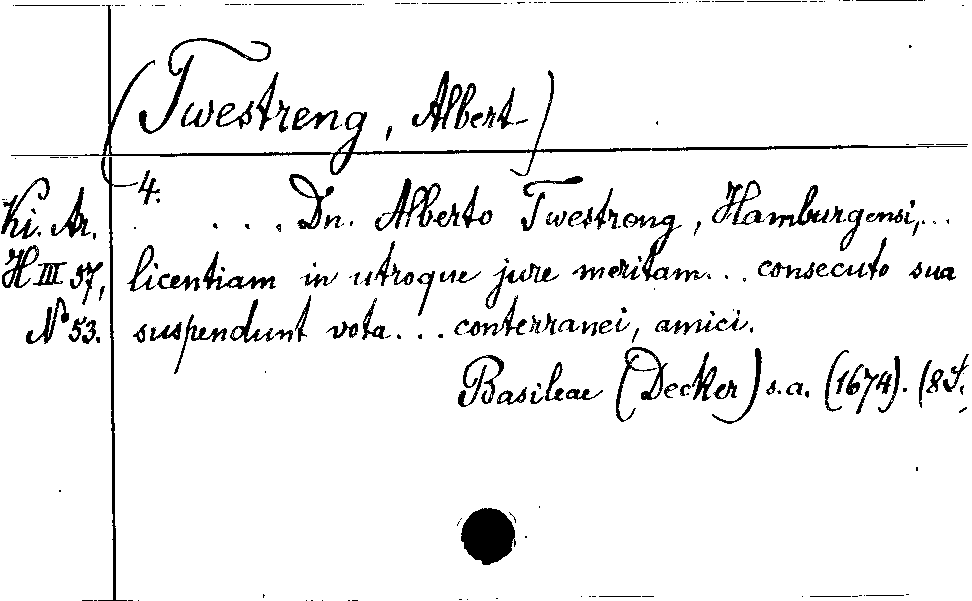 (Twestreng, Albert)
4.
Ki. Ar. . . . . Dn. Alberto Twestreng, Hamburgensi, ...
H III 57, licentiam in utroque jure meritam ... consecuto sua
No 53. suspendunt vota ... conterranei, amici.
Basileae (Decker) s.a. (1674). (8 S.